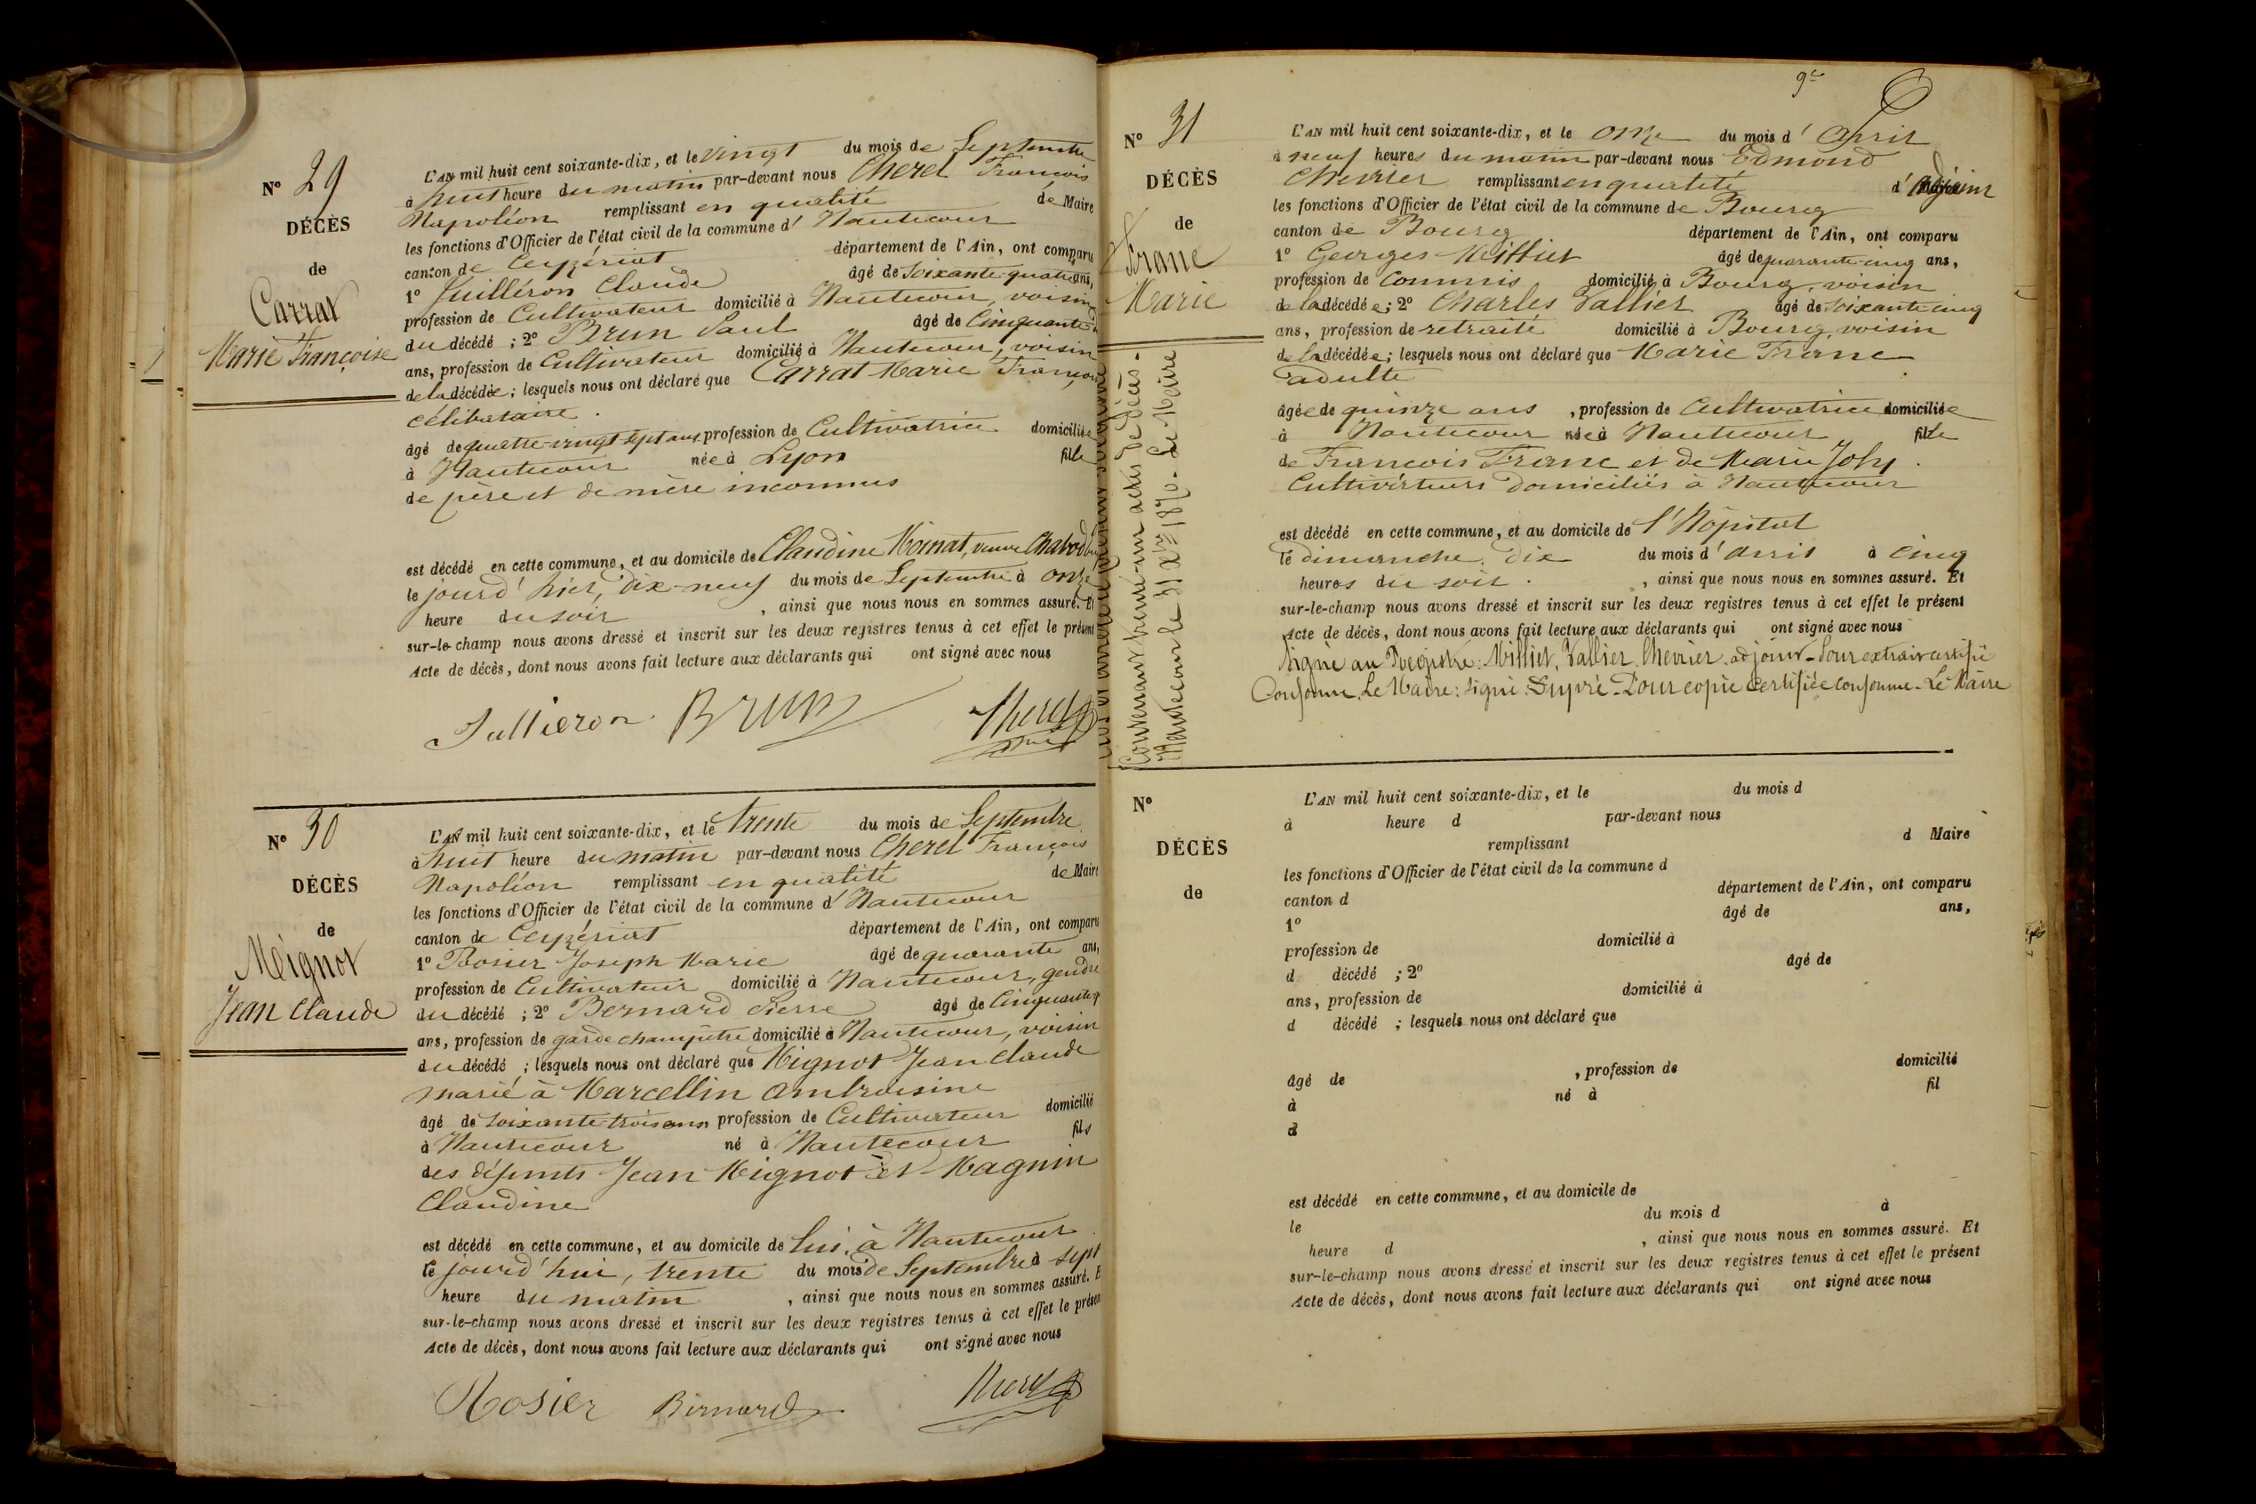 N° 29
DÉCÈS
de
Carrat
Marie Françoise
L'AN mil huit cent soixante-dix, et le vingt du mois de Septembre
à huit heure du matin par-devant nous Cherel François
Napoléon remplissant en qualité de Maire
les fonctions d'Officier de l'état civil de la commune d'Hautecour
canton de Ceyzériat département de l'Ain, ont comparu
1° Juilléron Claude âgé de Soixante-quatre ans,
profession de Cultivateur domicilié à Hautecour, voisin
du décédé ; 2° Brun Paul âgé de Cinquante
ans, profession de Cultivateur domicilié à Hautecour, voisin
de la décédée ; lesquels nous ont déclaré que Carrat Marie Françoise,
célibataire.
âgé de quatre-vingt-sept ans profession de Cultivatrice domiciliée
à Hautecour née à Lyon fille
de père et de mère inconnus
est décédé en cette commune, et au domicile de Claudine Moinat, veuve Chabod
le jourd'hier, dix-neuf du mois de Septembre à onze
heure du soir , ainsi que nous nous en sommes assuré. Et
sur-le-champ nous avons dressé et inscrit sur les deux registres tenus à cet effet le présent
Acte de décès, dont nous avons fait lecture aux déclarants qui ont signé avec nous
Jullieron Brun Cherel
N° 30
DÉCÈS
de
Meignot
Jean Claude
L'AN mil huit cent soixante-dix, et le trente du mois de Septembre
à huit heure du matin par-devant nous Cherel François
Napoléon remplissant en qualité de Maire
les fonctions d'Officier de l'état civil de la commune d'Hautecour
canton de Ceyzériat département de l'Ain, ont comparu
1° Rosier Joseph Marie âgé de quarante ans,
profession de Cultivateur domicilié à Hautecour, gendre
du décédé ; 2° Bernard Pierre âgé de Cinquante
ans, profession de garde champêtre domicilié à Hautecour, voisin
du décédé ; lesquels nous ont déclaré que Mignot Jean Claude
marié à Marcellin Ambroisine
âgé de soixante trois ans profession de Cultivateur domicilié
à Hautecour né à Hautecour fils
des défunts Jean Mignot et Magnin
Claudine
est décédé en cette commune, et au domicile de lui, à Hautecour
le jourd'hui, trente du mois de Septembre à sept
heure du matin , ainsi que nous nous en sommes assuré. E
sur-le-champ nous avons dressé et inscrit sur les deux registres tenus à cet effet le présen
Acte de décès, dont nous avons fait lecture aux déclarants qui ont signé avec nous
Rosier Bernard Cherel
N° 31
DÉCÈS
de
Franc
Marie
Contenant trente-un actes de décès.
Hautecour le 31 Xbre 1870. Le Maire
L'AN mil huit cent soixante-dix, et le onze du mois d'Avril
à neuf heures du matin par-devant nous Edmond
Chevrier remplissant en qualité d'adjoint
les fonctions d'Officier de l'état civil de la commune de Bourg
canton de Bourg département de l'Ain, ont comparu
1° Georges Milliet âgé de quarante-cinq ans,
profession de Commis domicilié à Bourg, voisin
de la décédée ; 2° Charles Vallier âgé de Soixante cinq
ans, profession de retraité domicilié à Bourg, voisin
de la décédée ; lesquels nous ont déclaré que Marie Franc
adulte
âgée de quinze ans , profession de Cultivatrice domiciliée
à Hautecour née à Hautecour fille
de François Franc et de Marie Joly.
Cultivateurs domiciliés à Hautecour
est décédé en cette commune, et au domicile de l'Hôpital
le dimanche dix du mois d'avril à cinq
heures du soir. , ainsi que nous nous en sommes assuré. Et
sur-le-champ nous avons dressé et inscrit sur les deux registres tenus à cet effet le présent
Acte de décès, dont nous avons fait lecture aux déclarants qui ont signé avec nous
Signé au Registre: Milliet, Vallier, Chevrier adjoint. Pour extrait certifié
Conforme, Le Maire: signé: Dupré. Pour copie certifiée conforme. Le Maire
N°
DÉCÈS
de
L'AN mil huit cent soixante-dix, et le du mois d
à heure d par-devant nous
remplissant d Maire
les fonctions d'Officier de l'état civil de la commune d
canton d département de l'Ain, ont comparu
1° âgé de ans,
profession de domicilié à
d décédé ; 2° âgé de
ans, profession de domicilié à
d décédé ; lesquels nous ont déclaré que
âgé de , profession de domicilié
à né à fil
d
est décédé en cette commune, et au domicile de
le du mois d à
heure d , ainsi que nous nous en sommes assuré. Et
sur-le-champ nous avons dressé et inscrit sur les deux registres tenus à cet effet le présent
Acte de décès, dont nous avons fait lecture aux déclarants qui ont signé avec nous